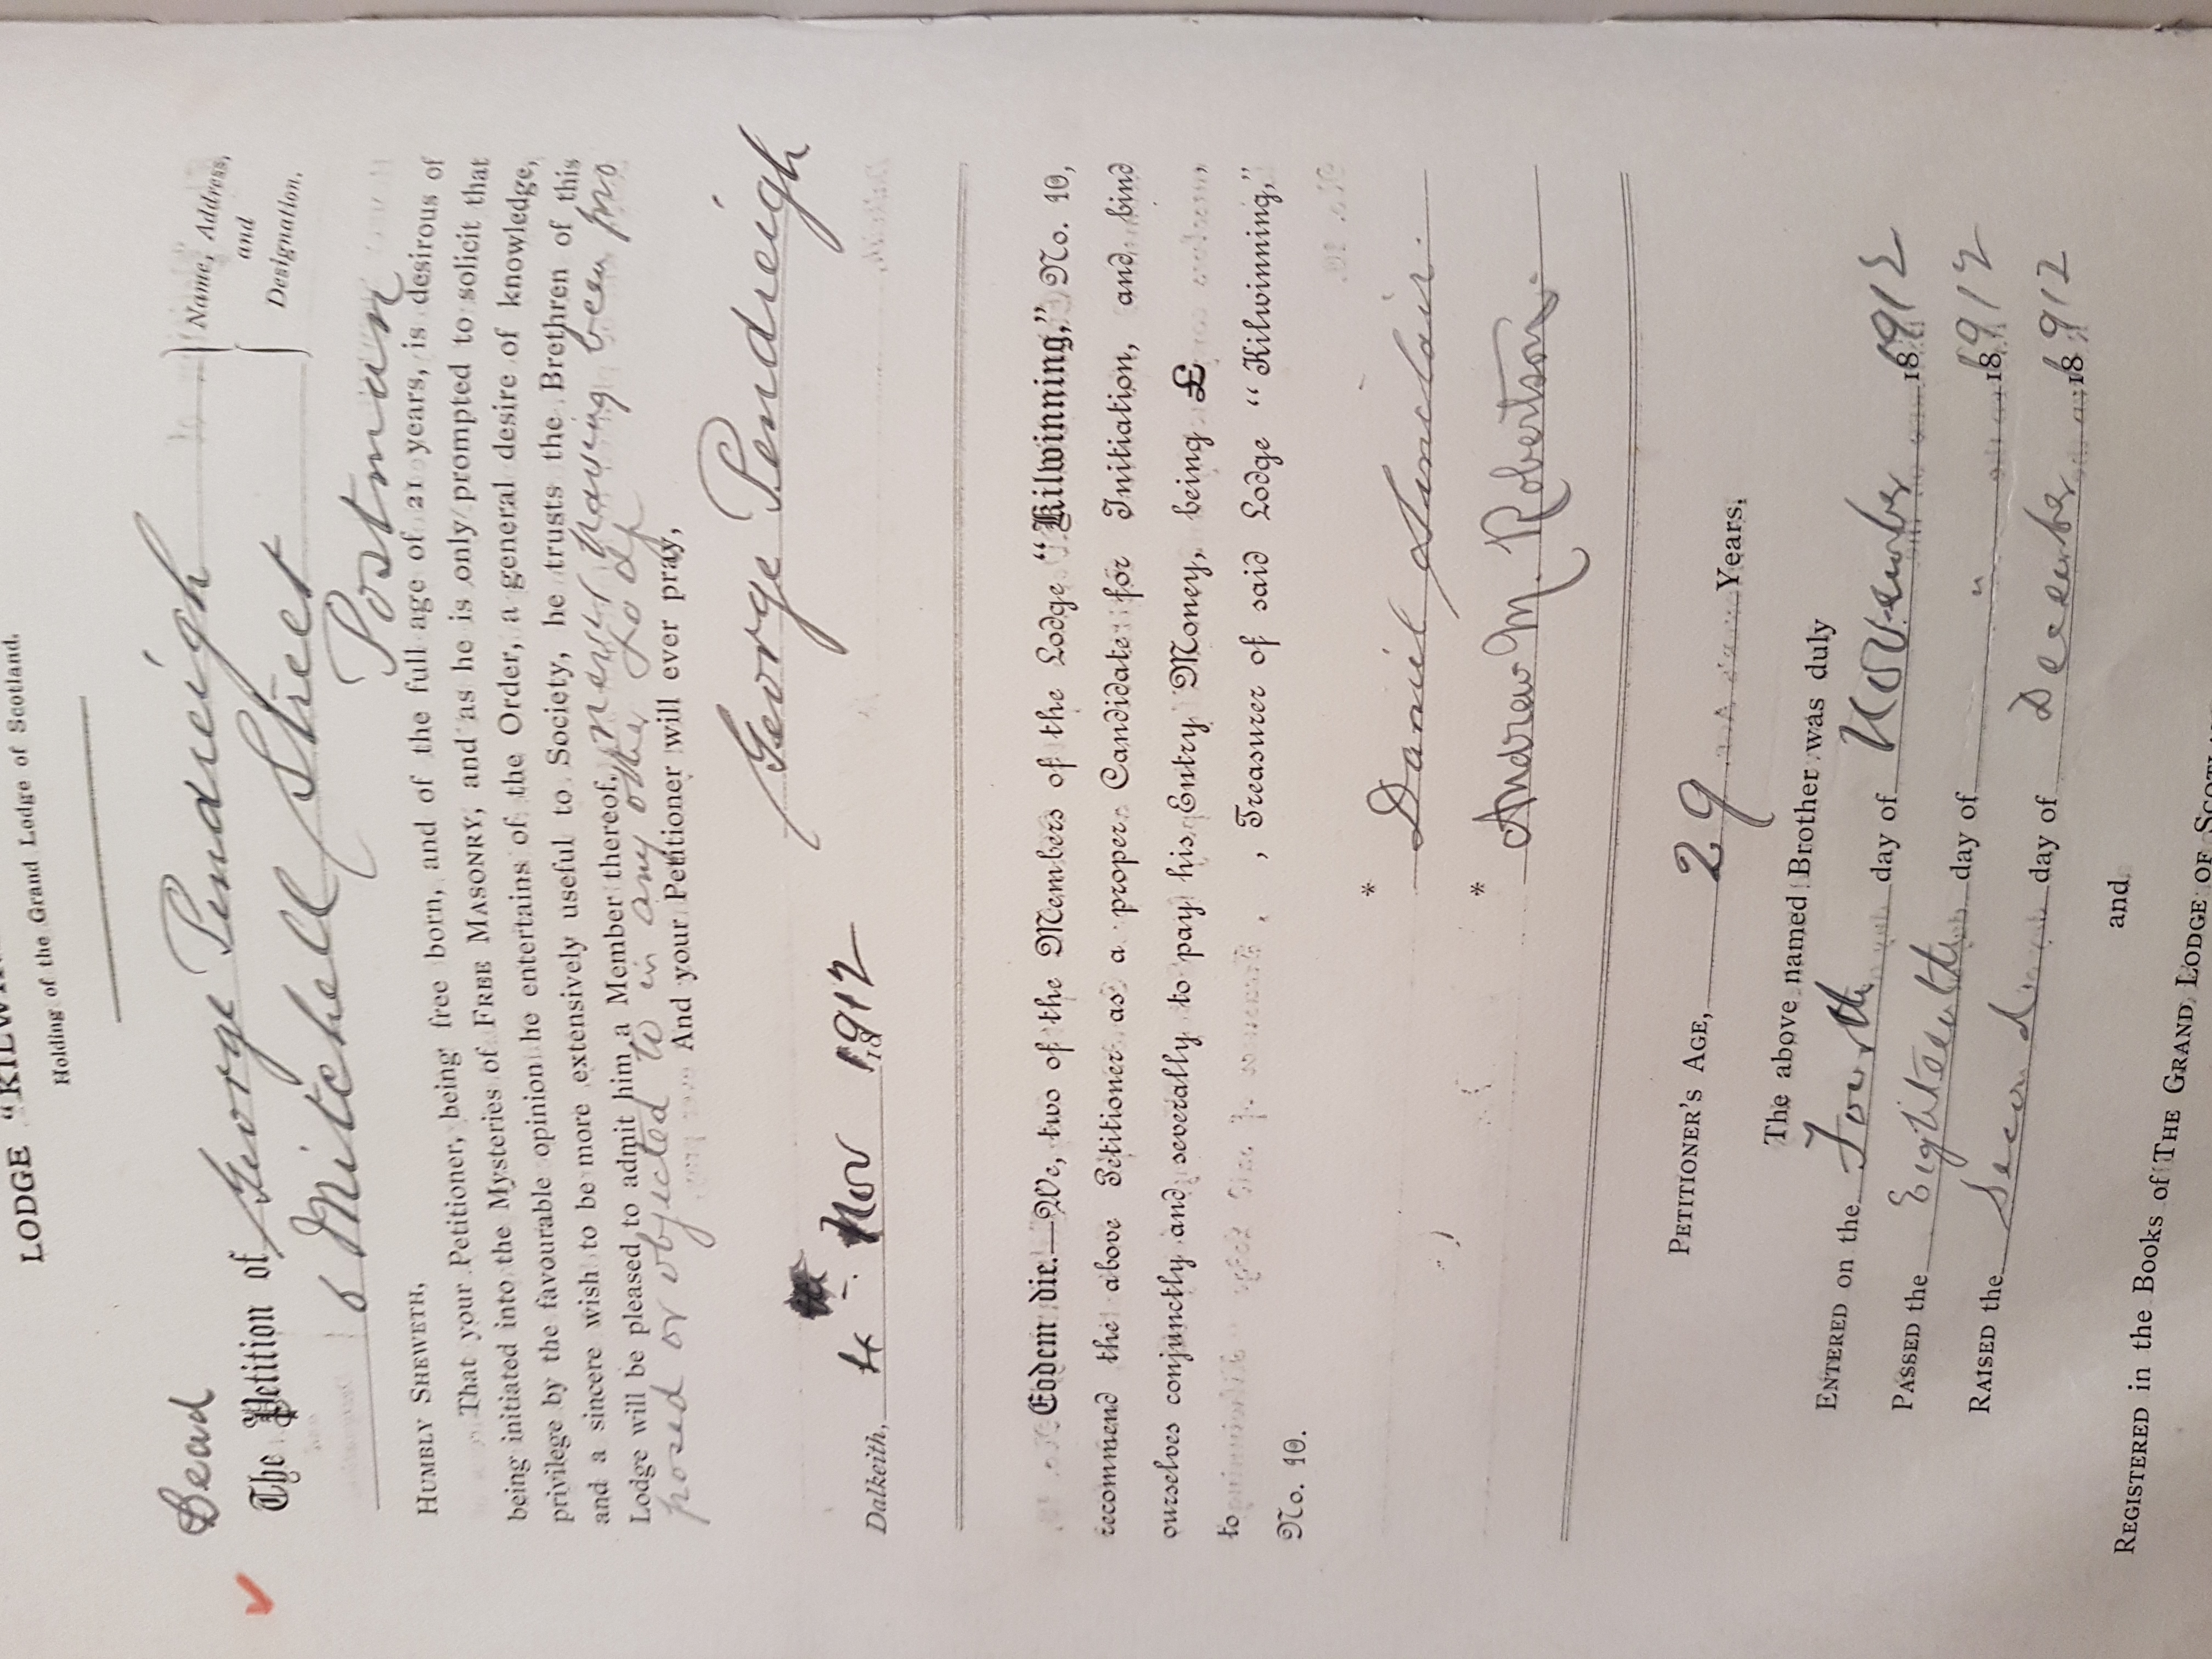 LODGE "KILW
Holding of the Grand Lodge of Scotland.
Dead
The Petition of George Pendreigh
6 Mitchell Street
Postman
Name, Address,
and
Designation,
HUMBLY SHEWETH,
That your Petitioner, being free born, and of the full age of 21 years, is desirous of
being initiated into the Mysteries of FREE MASONRY, and as he is only prompted to solicit that
privilege by the favourable opinion he entertains of the Order, a general desire of knowledge,
and a sincere wish to be more extensively useful to Society, he trusts the Brethren of this
Lodge will be pleased to admit him a Member thereof, never having been pro
posed or objected to in any other Lodge
And your Petitioner will ever pray,
George Pendreigh
Dalkeith, 4 Nov 1912
Eodem die.—We, two of the Members of the Lodge "Kilwinning," No. 10,
recommend the above Petitioner as a proper Candidate for Initiation, and bind
ourselves conjunctly and severally to pay his Entry Money, being £
to , Treasurer of said Lodge "Kilwinning,"
No. 10.
* Daniel Sinclair.
* Andrew M. Robertson.
PETITIONER'S AGE, 29 Years.
The above named Brother was duly
ENTERED on the Fourth day of November 1912
PASSED the Eighteenth day of " 1912
RAISED the Second day of December 1912
and
REGISTERED in the Books of THE GRAND LODGE OF SCOTL